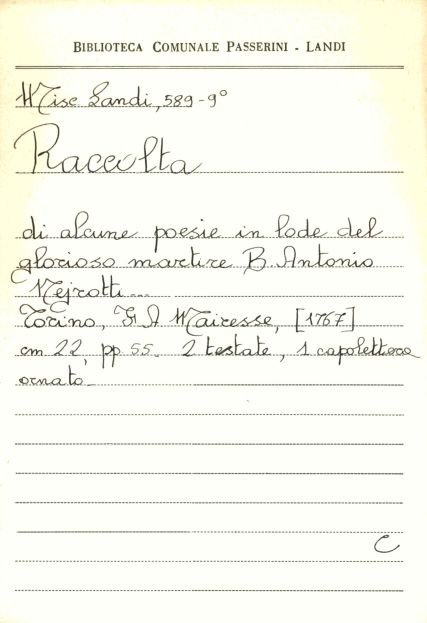 BIBLIOTECA COMUNALE PASSERINI - LANDI
Misc Landi, 589-9°
Raccolta
di alcune poesie in lode del
glorioso martire B. Antonio
Nejrotti...
Torino, G A Mairesse, [1767]
cm 22, pp 55. 2 testate, 1 capolettera
ornato.
C